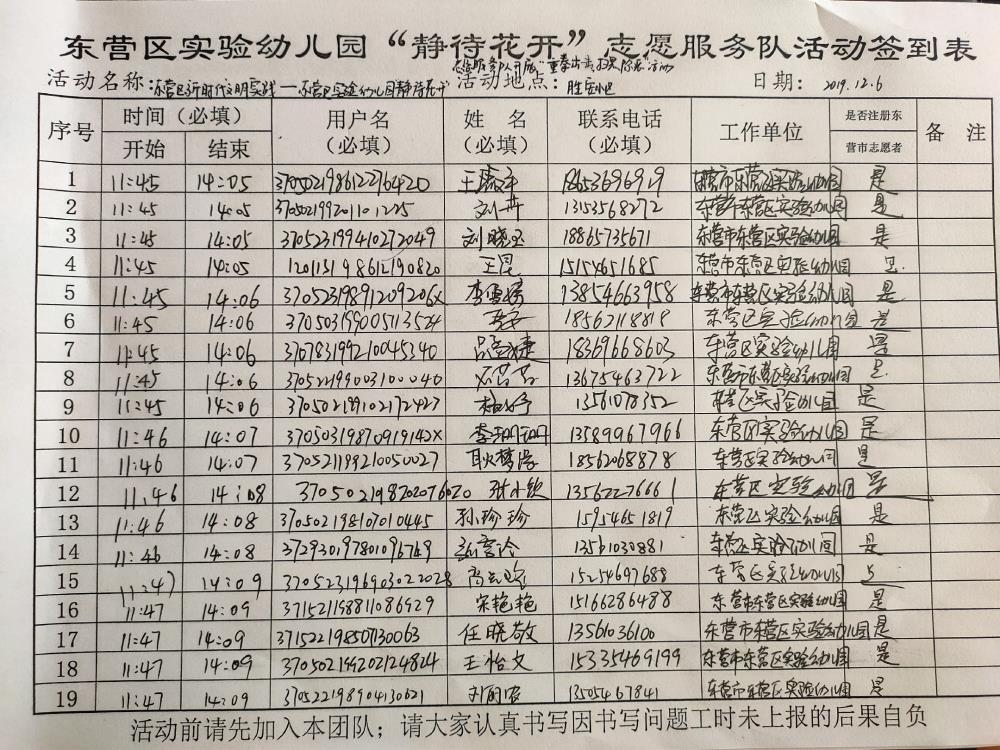 东营区实验幼儿园“静待花开”志愿服务队活动签到表
志愿服务队开展“重奉出击 扫黑除恶”活动
活动名称：东营区新时代文明实践——东营区实验幼儿园“静待花开” 活动地点：胜宏小区 日期：2019.12.6
序号 时间（必填） 用户名（必填） 姓名（必填） 联系电话（必填） 工作单位 是否注册东营市志愿者 备注
开始 结束
1 11:45 14:05 王 东营市东营区实验幼儿园 是
2 11:45 14:05 刘卉 13153568272 东营市东营区实验幼儿园 是
3 11:45 14:05 370523199410272049 刘晓玉 18865735671 东营市东营区实验幼儿园 是
4 11:45 14:05 120113198612190820 王昆 15154651685 东营市东营区实验幼儿园 是
5 11:45 14:06 37052319891209206X 李雪婷 13854663958 东营市东营区实验幼儿园 是
6 11:45 14:06 370503199005113524 18562118818 东营区实验幼儿园 是
7 11:45 14:06 370783199210045340 吕孟捷 18369668603 东营区实验幼儿园 是
8 11:45 14:06 370522199003100040 石苔苔 13675463722 东营市东营区实验幼儿园 是
9 11:45 14:06 370502199102172427 13561078352 东营区实验幼儿园 是
10 11:46 14:07 37050319870919142X 李珊珊 13589967966 东营区实验幼儿园 是
11 11:46 14:07 370521199210050027 耿梦 18562068878 东营区实验幼儿园 是
12 11:46 14:08 370502198202076020 张小钦 13562276661 东营区实验幼儿园 是
13 11:46 14:08 370502198107010445 孙珍珍 15954651819 东营区实验幼儿园 是
14 11:46 14:08 13561030881 东营区实验幼儿园 是
15 11:47 14:09 370523196903022028 15254697688 东营区实验幼儿园 是
16 11:47 14:09 371521198811086929 宋艳艳 15166286488 东营市东营区实验幼儿园 是
17 11:47 14:09 371522198507130063 任晓敬 13561036100 东营市东营区实验幼儿园 是
18 11:47 14:09 370502199202124824 王怡文 15335469199 东营市东营区实验幼儿园 是
19 11:47 14:09 刘 13505467841 东营市东营区实验幼儿园 是
活动前请先加入本团队；请大家认真书写因书写问题工时未上报的后果自负